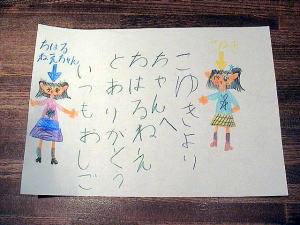 ちはる
ねえちゃん
いつもおしご
とありがとう
ちはるねえ
ちゃんへ
こゆきより
こゆき